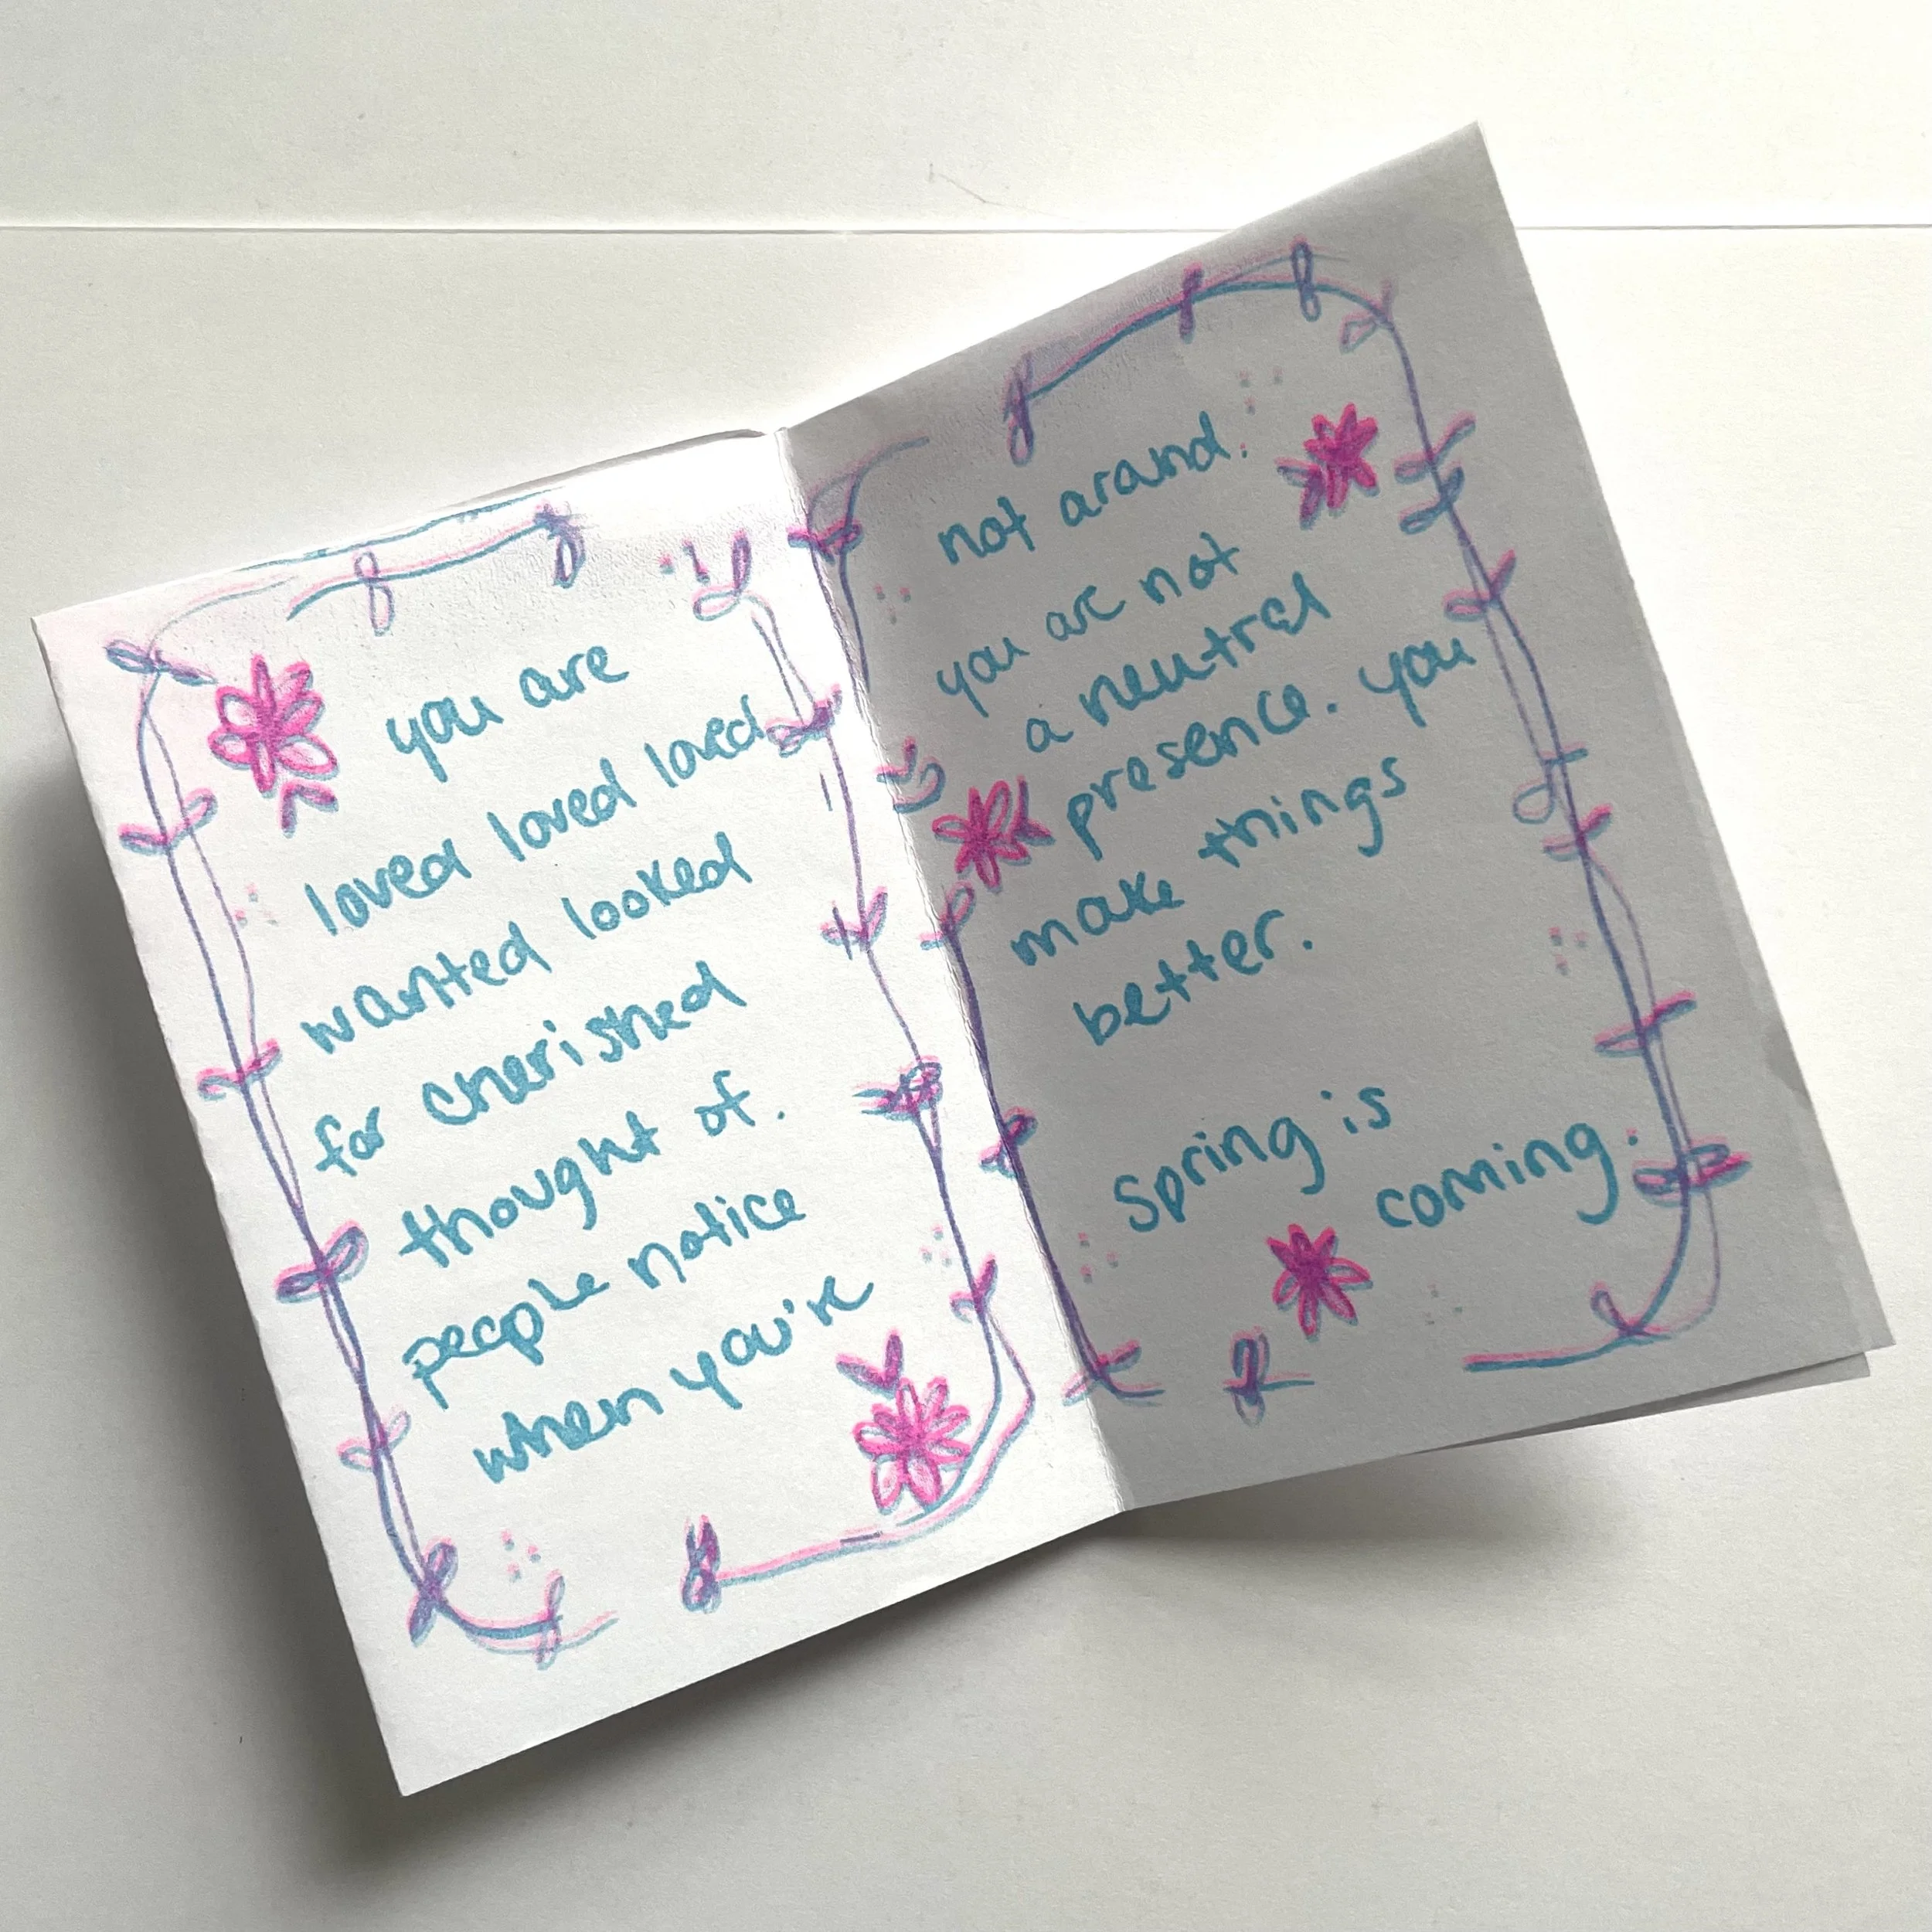 you are
loved loved loved
wanted looked
for cherished
thought of.
people notice
when you're
not around.
you are not
a neutral
presence. you
make things
better.
spring is
coming.